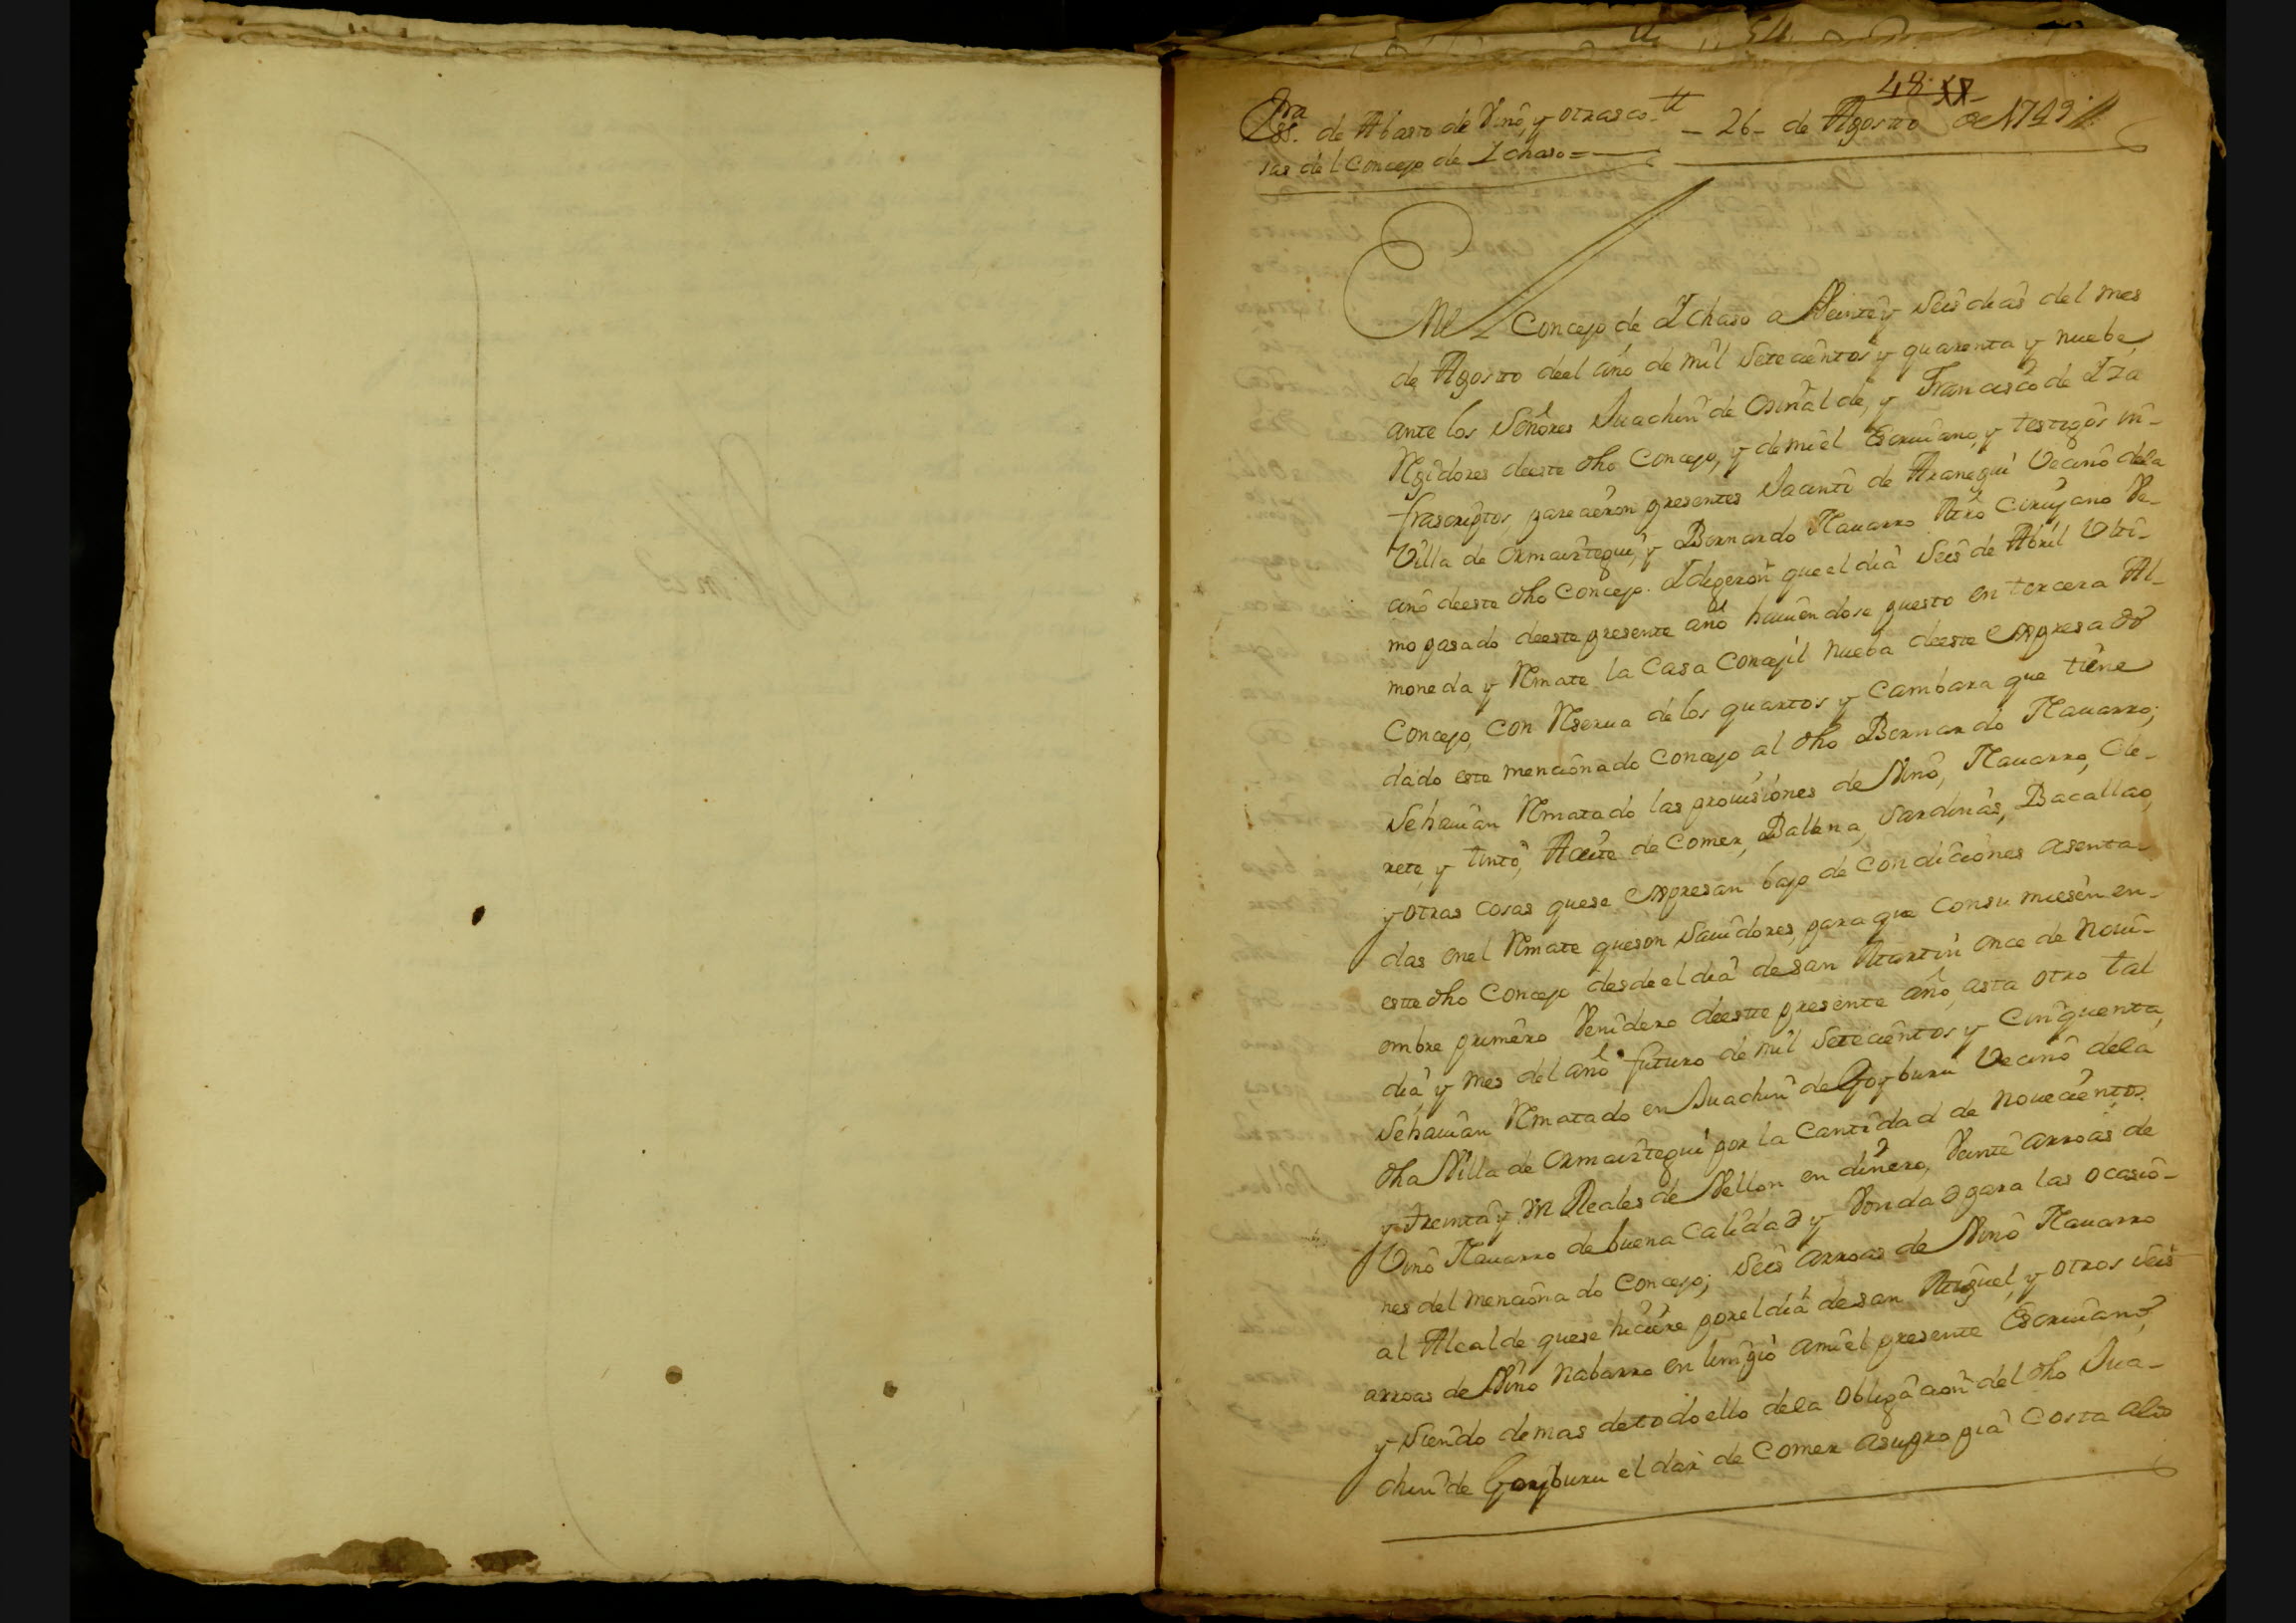 48
Essra. de Abasto de Vino, y otras co-
sas del Concejo de Ichaso =
- 26 - de Agosto de 1749 //
En el Concejo de Ichaso a Veinte y Seis dias del mes
de Agosto deel año de mil Setecientos y quarenta y nuebe,
ante los Señores Juachin de Osinalde, y Francisco de Iza
Rexidores deeste dho Concejo, y demi el Escriuano, y testigos in-
frascriptos parecieron presentes Jacinto de Aranegui Vecino dela
Villa de Ormaiztegui, y Bernardo Nauarro Mro Cirujano Ve-
cino deeste dho Concejo. Idigeron que el dia Seis de Abril Vlti-
mo pasado deeste presente año hauiendose puesto en tercera Al-
moneda y Rmate la Casa Concejil nueba deeste expresado
Concejo, con Rserua de los quartos y cambara que tiene
dado este mencionado Concejo al dho Bernardo Nauarro,
Sehauian Rmatado las prouisiones de Vino, Nauarro, Cla-
rete, y tinto, Aceite de Comer, Ballena, Sardinas, Bacallao,
y otras cosas quese expresan bajo de condiciones asenta-
das enel Rmate queson Sauidores, para que consumiesen en-
este dho Concejo desde el dia desan Martin once de Noui-
embre primero Venidero deeste presente año, asta otro tal
dia y mes del año futuro de mil Setecientos y Cinquenta,
Sehauian Rmatado en Juachin de Goyburu Vecino dela
dha Villa de Ormaiztegui por la Cantidad de nouecientos
y treinta y un Reales de Vellon en dinero, Veinte arroas de
Vino Nauarro de buena Calidad y Vondad para las ocasio-
nes del mencionado Concejo; Seis arroas de Vino Nauarro
al Alcalde quese hiciere porel dia desan Miguel, y otros seis
arroas de Vino Nabarro en limpio amiel presente Escriuano,
y Siendo demas detodo ello dela Obligacion del dho Jua-
chin de Goyburu el dar de Comer asupropia Costa alos